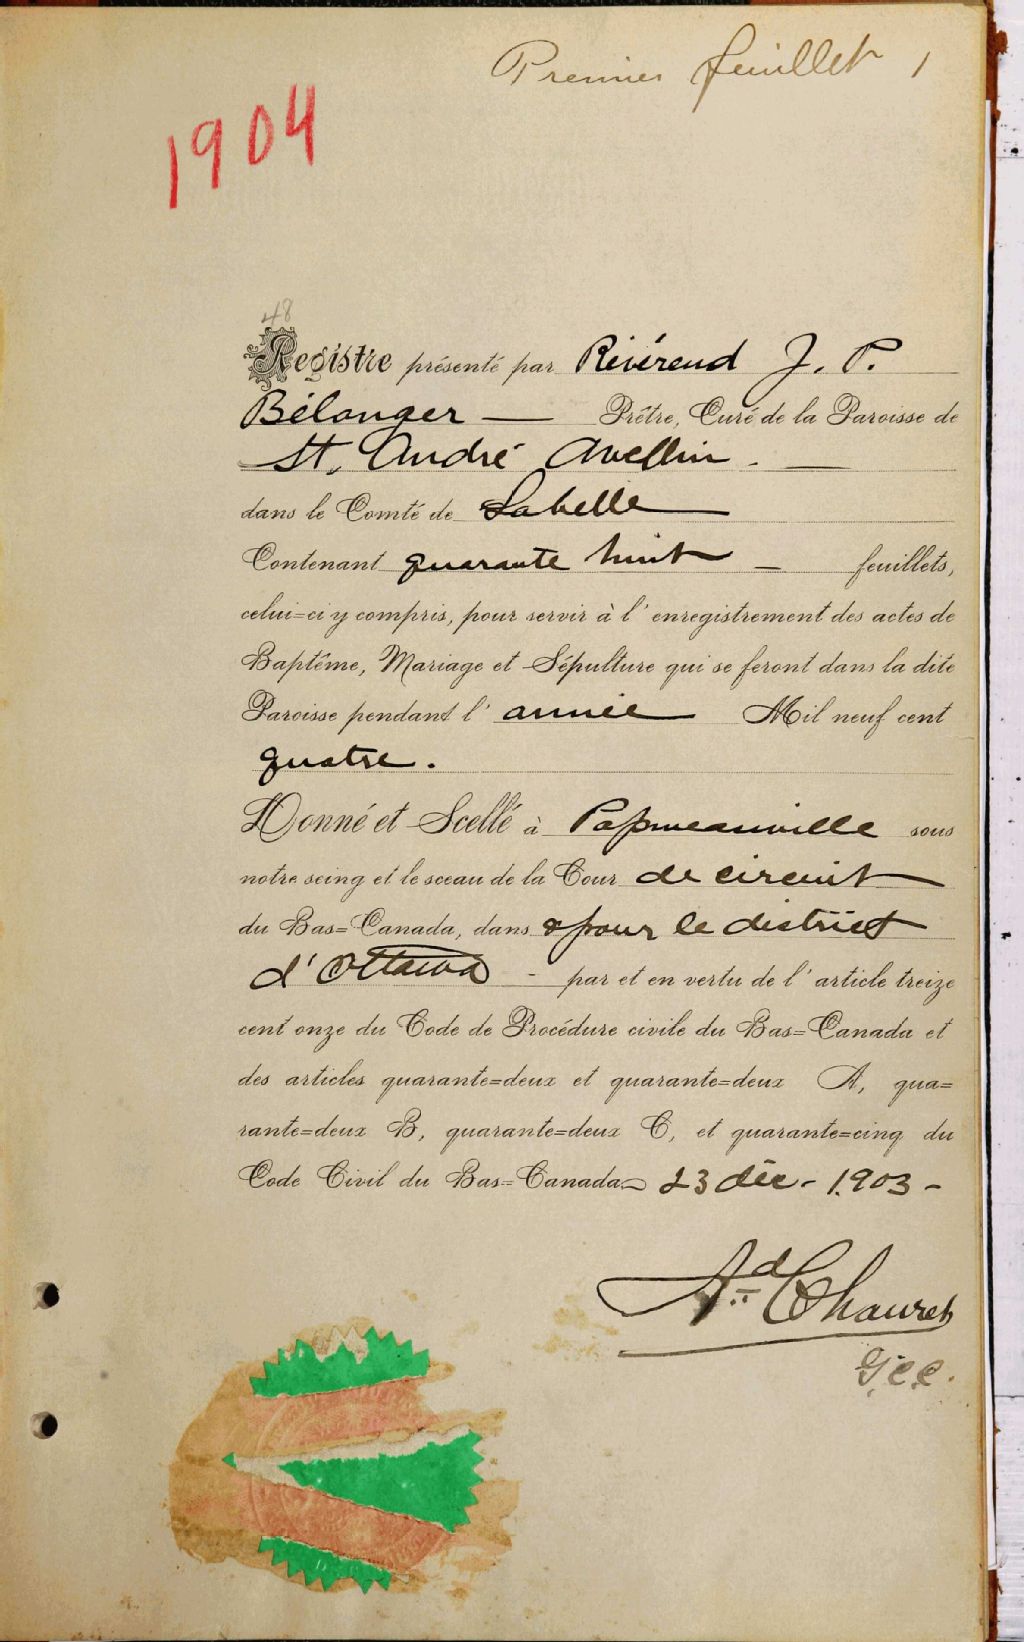 Premier feuillet 1
1904
48
Registre présenté par Révérend J. P.
Bélanger — Prêtre, Curé de la Paroisse de
St. André Avellin. —
dans le Comté de Labelle
Contenant quarante huit — feuillets,
celui=ci y compris, pour servir à l'enregistrement des actes de
Baptême, Mariage et Sépulture qui se feront dans la dite
Paroisse pendant l'année Mil neuf cent
quatre.
Donné et Scellé à Papineauville sous
notre seing et le sceau de la Cour de circuit
du Bas=Canada, dans & pour le district
d'Ottawa - par et en vertu de l'article treize
cent onze du Code de Procédure civile du Bas=Canada et
des articles quarante=deux et quarante=deux A, qua=
rante=deux B, quarante=deux C, et quarante=cinq du
Code Civil du Bas=Canada 23 déc - 1903 -
Ad. Chauret
G.C.C.